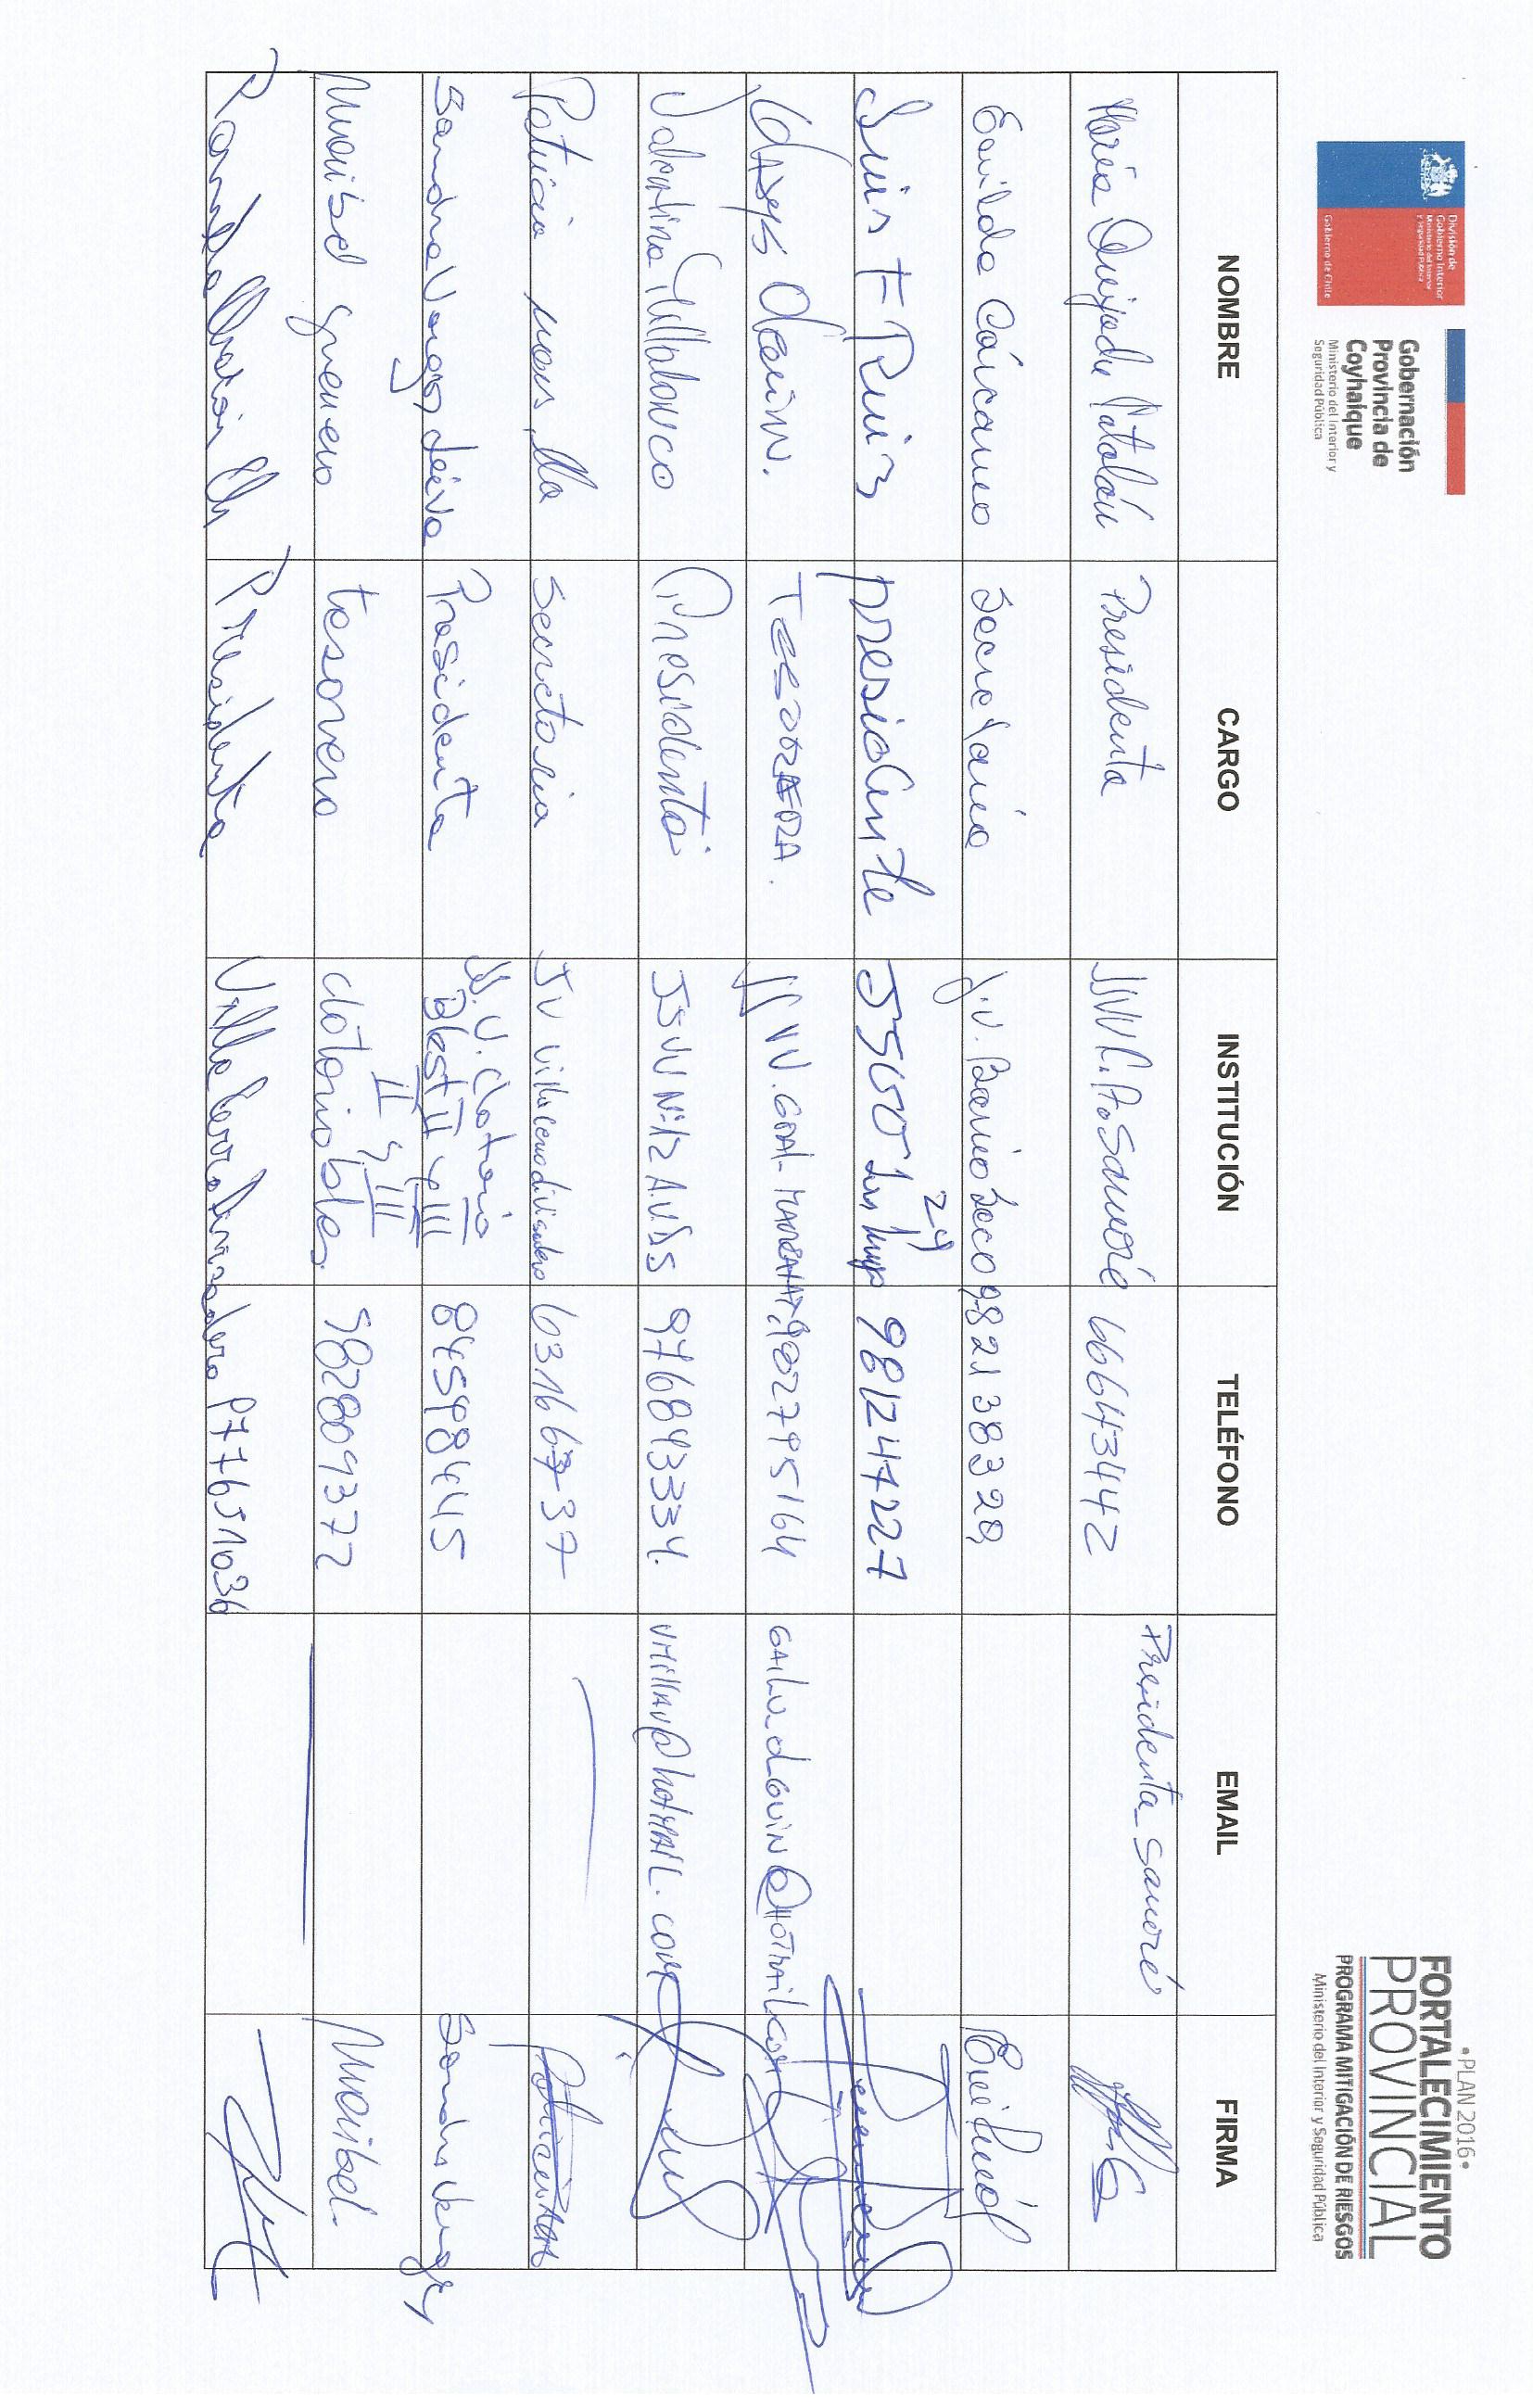 División de
Gobierno Interior
Ministerio del Interior
y Seguridad Pública
Gobierno de Chile
Gobernación
Provincia de
Coyhaique
Ministerio del Interior y
Seguridad Pública
•PLAN 2016•
FORTALECIMIENTO
PROVINCIAL
PROGRAMA MITIGACIÓN DE RIESGOS
Ministerio del Interior y Seguridad Pública
NOMBRE CARGO INSTITUCIÓN TELÉFONO EMAIL FIRMA
María Quijada Catalán Presidenta JJVV C.A. Samoré 66643442 Presidenta_samoré
Cárcamo Secretaria J.V. Barrio Seco 982138329
Luis F Ruiz presidente 24 981247227
TESORERA JJVV. GRAL- 982795164
Valentina Presidenta JJVV Nº12 976843334. @hotMAIL.com
Patricia Secretaria JV Villa cerro divisadero 63166737
Sandra Vargas Leiva Presidenta JJ.V. Clotario 84598445 Sandra Vargas
Blest II y III
II y III
Maribel guerrero tesorera clotario bles. 982809372 Maribel.
Presidenta Villa Cerro Divisadero 977651036